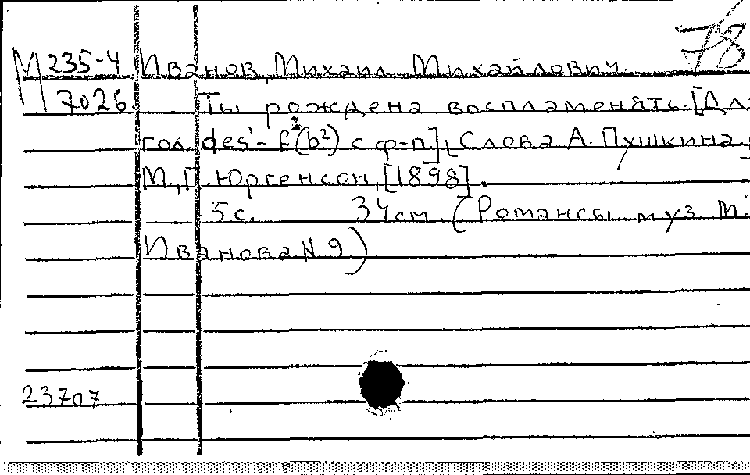 78
М 235-4 Иванов, Михаил Михайлович.
7026. Ты рождена воспламенять. [Дл
гол. des'-f²(b²) с ф-п]. Слова А. Пушкина.
М., П. Юргенсон, [1898].
5 с. 34 см. (Романсы муз. М.
Иванова № 9)